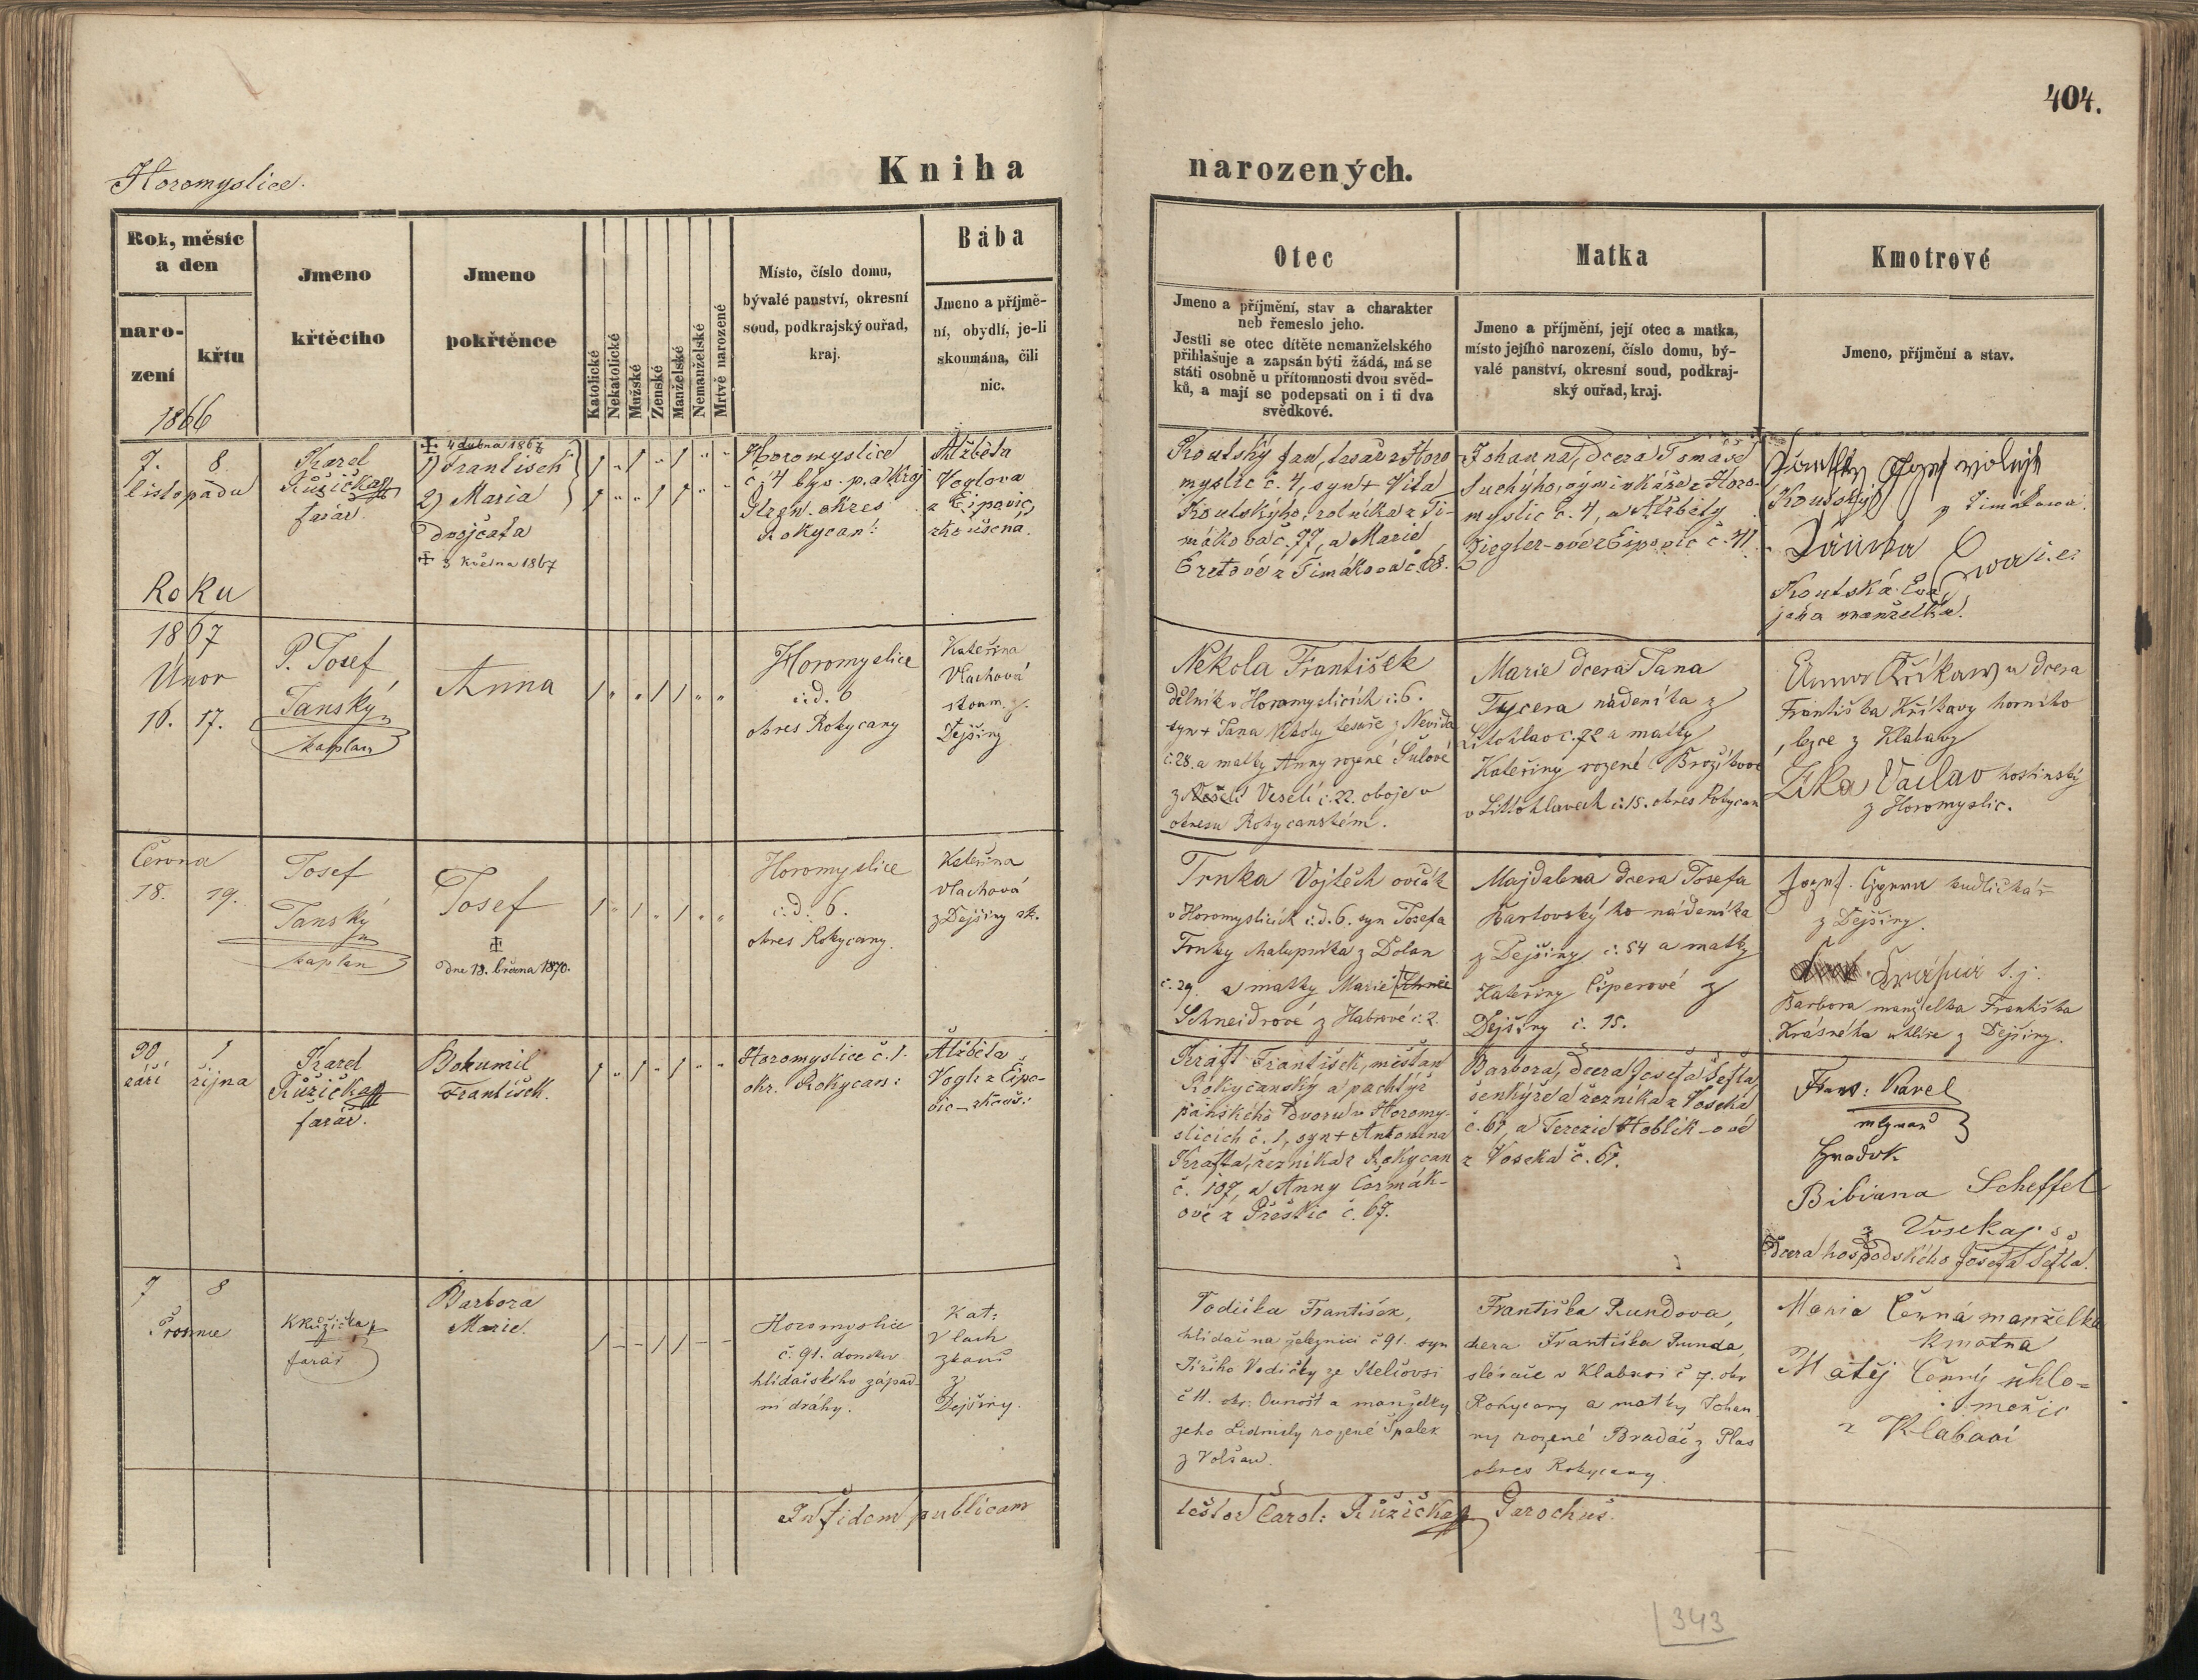 404.
Horomyslice.
Kniha narozených.
Rok, měsíc
a den
naro-
zení
křtu
Jmeno
křtěcího
Jmeno
pokřtěnce
Katolické
Nekatolické
Mužské
Ženské
Manželské
Nemanželské
Mrtvě narozené
Místo, číslo domu,
bývalé panství, okresní
soud, podkrajský ouřad,
kraj.
Bába
Jmeno a příjmě-
ní, obydlí, je-li
skoumána, čili
nic.
Otec
Jmeno a příjmění, stav a charakter
neb řemeslo jeho.
Jestli se otec dítěte nemanželského
přihlašuje a zapsán býti žádá, má se
státi osobně u přítomnosti dvou svěd-
ků, a mají se podepsati on i ti dva
svědkové.
Matka
Jmeno a příjmění, její otec a matka,
místo jejího narození, číslo domu, bý-
valé panství, okresní soud, podkraj-
ský ouřad, kraj.
Kmotrové
Jmeno, příjmění a stav.
1866
7. 8.
listopadu
Karel
Růžička
farář.
✝ 4 dubna 1867
1) František
2) Maria
dvojčata
✝ 3 května 1867
Horomyslice
č. 4 býv. p. a kraj
Plzň. okres
Rokycan:
Alžběta
Voglova
z Ejpovic,
zkoušena.
Koutský Jan, tesař z Horo
myslic č. 4, syn + Víta
Koutskýho, rolníka z Ti-
mákova č. 77, a Marie
Eretové z Timákova č. 68.
Johanna, dcera Tomáše
Suchýho, výminkáře z Horo-
myslic č. 4, a Alžběty
Ziegler-ové z Ejpovic č. 41.
Koutský
z Timákova.
Koutská Eva,
jeho manželka.
Roku
1867
Únor
16. 17.
P. Josef
Janský
kaplan
Anna
Horomyslice
č.d. 6
okres Rokycany
Kateřina
Vlachová
zkoum. z
Dejšiny
Nekola František
dělník v Horomyslicích č. 6.
syn + Jana Nekoly tesaře z Nevida
č. 28. a matky Anny rozené Šulové
z Veselí č. 22. oboje v
okresu Rokycanském.
Marie dcera Jana
Tycera nádeníka z
Litohlav č. 72 a matky
Kateřiny rozené Brožíkové
v Litohlavech č. 15. okres Rokycan
Anna Kříkawa dcera
Františka Kříkavy horního
z Klabavy
Žika Václav hostinský
z Horomyslic.
Června
18. 19.
Josef
Janský
kaplan
Josef
✝
dne 18. března 1870.
Horomyslice
č.d. 6.
okres Rokycany.
Kateřina
Vlachová
z Dejšiny zk.
Trnka Vojtěch ovčák
v Horomyslicích č.d. 6. syn Josefa
Trnky chalupníka z Dolan
č. 29. a matky Marie
Schneidrové z Habrové č. 2.
Majdalena dcera Josefa
Bartovského nádeníka
z Dejšiny č. 54 a matky
Kateřiny Čiperové z
Dejšiny č. 15.
Jozef. kudličkář
z Dejšiny.
Barbora manželka Františka
Krásného uhlíře z Dejšiny.
30. 1
září října
Karel
Růžička
farář.
Bohumil
František.
Horomyslice č. 1.
okr. Rokycan:
Alžběta
Vogl z Ejpo-
vic – zkouš:
Kraft František, měšťan
Rokycanský a pachtýř
pánského dvoru v Horomy-
slicích č. 1, syn + Antonína
Krafta, řezníka z Rokycan
č. 107, a Anny Čermák-
ové z Přeštic č. 67.
Barbora, dcera Josefa Šefla,
šenkýře a řezníka z Voseka
č. 67, a Terezie Hoblík-ové
z Voseka č. 67.
Franz: Karel
mlynář
Hradek
Bibiana Scheffel
z Vosekaj
dcera hospodského Josefa Šefla.
7 8
Prosince
K Růžička
farář
Barbora
Marie.
Horomyslice
č. 91. domku
hlídačského západ-
ní dráhy.
Kat:
Vlach
zkouš
z
Dejšiny.
Vodička František,
hlídač na železnici č 91. syn
Jiřího Vodičky ze Stelčovsi
č 11. okr: Ounošť a manželky
jeho Lidmily rozené Špalek
z Volšan.
Františka Rundova,
dcera Františka Runda,
slévače v Klabavi č 7. okr
Rokycany a matky Johan
ny rozené Bradáč z Plas
okres Rokycany
Maria Černá manželka
kmotna
Matěj Černý uhlo=
měřič
z Klabavi
In fidem publicam
testor Carol: Růžička Parochus.
343